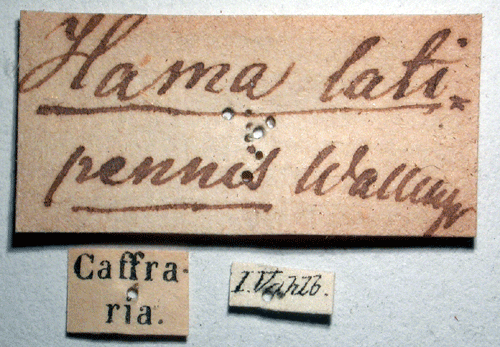 Hama lati-
pennis Wallengr
Caffra-
ria.
J. Vahlb.